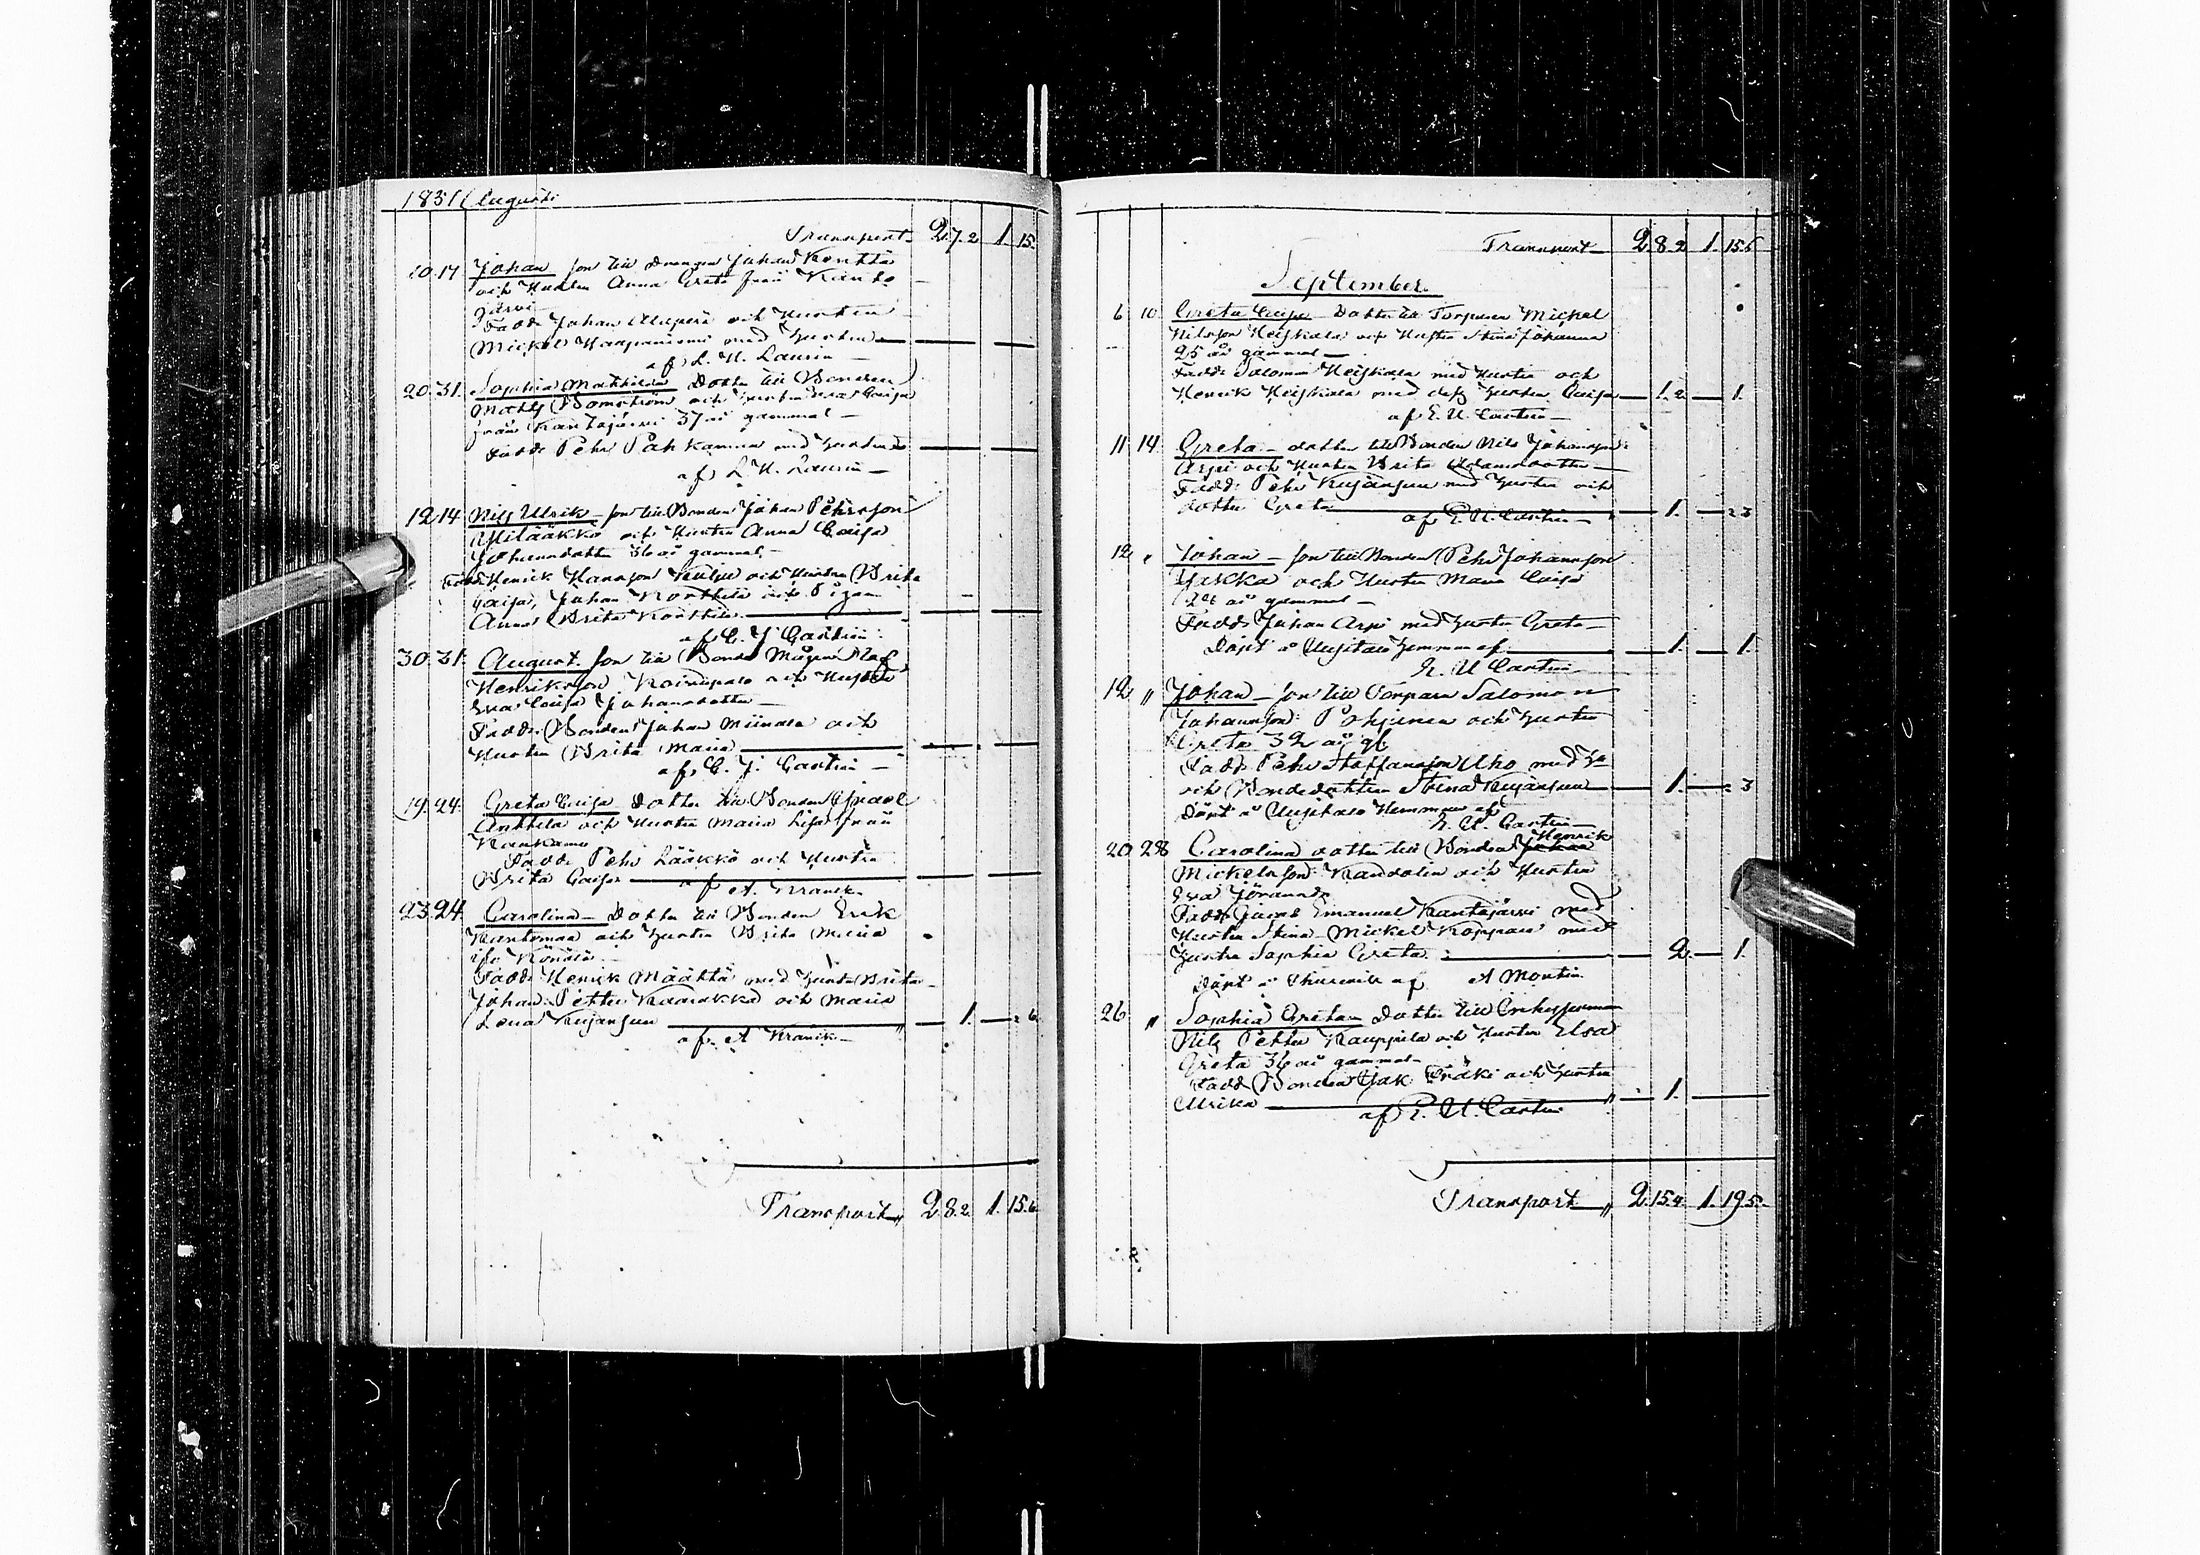 1831 Augusti
Transport 2.7.2 1 15.
10.17 Johan son till Drengen Johan Konttä
och Hustru Anna Greta från Kanto
järvi
Fadd: Johan Alaperä och Hustru
Mickel Haapaniemi med Hustru
af L. H. Laurin
20.31. Sophia Mathilda Dotter till Bonden
Maths Bomström och Hustru Eva Caisa
från Kantojärvi 37 år gammal
Fadd: Pehr Pahkamaa med Hustru
af L. H. Laurin
12 14 Nils Ulrik son till Bonden Johan Pehrsson
Ylilääkkö och Hustru Anna Caisa
Johansdotter 36 år gammal
Fadd: Henrick Hansson Kulju och Hustru Brita
Caisa, Johan Konttila och Pigan
Anna Brita Konttila
af C. J. Castrin
30.31. August son till Bonde Mågen Olof
Henriksson Koivupalo och Hustru
Eva Caisa Johansdotter
Fadd: Bonden Johan Miinala och
Hustru Brita Maria
af C. J. Castrin
19.24. Greta Caisa Dotter till Bonden Israel
Anttila och Hustru Maria Lisa från
Kaakamo
Fadd: Pehr Lääkkö och Hustru
Brita Caisa
af A. Kranck
23.24. Carolina Dotter till Bonden Erik
Kantomaa och Hustru Brita Maria
Fadd: Henrik Määttä med Hustru Brita
Johan Petter Kaarakka och Maria
Lena Kujansuu 1. 6
af A Kranck
Transport 2.8.2 1.15.6
Transport 2.8.2 1.15.6
September.
6 10 Greta Caisa Dotter till Torparen Mickel
Nilsson Heiskala och Hustru Stina Johanna
25 år gammal
Fadd: Salomon Heiskala med Hustru och
Henrik Heiskala med dess Hustru Caisa 1.2 1.
af E. U. Castrin
11 14. Greta dotter till Bonden Nils Johansson
Arpi och Hustru Brita Adamsdotter
Fadd: Pehr Kujansuu med Hustru och
dotter Greta 1. 2 3
af E. U. Castrin
12 " Johan son till Bonden Pehr Johansson
Jakka och Hustru Maria Caisa
24 år gammal
Fadd: Johan Arpi med Hustru Greta
Döpt å Uusitalo Hemman af 1. 1.
E. U Castrin
12 " Johan son till Torparen Salomon
Johansson Pohjanen och Hustru
Greta 32 år gl.
Fadd: Pehr Staffansson Uho med H
och Bondedottren Stina Kujansuu 1. 3
Döpt å Uusitalo Hemman af
E. U. Castrin
20 28 Carolina dotter till Bonden Johan Henrik
Mickelsson Kandolin och Hustru
Eva Jöransdr
Fadd: Jacob Emanuel Kantojärvi med
Hustru Stina Mickel Koppalo med
Hustru Sophia Greta 2. 1.
Döpt i Thurevik af A Montin
26 " Sophia Greta Dotter till Enkoppman
Nils Petter Kauppila och Hustru Elsa
Greta 36 år gammal
Fadd: Bonden Isak Träki och Hustru
Ulrika 1.
af E. U. Castrin
Transport 2.15.4 1.19.5.